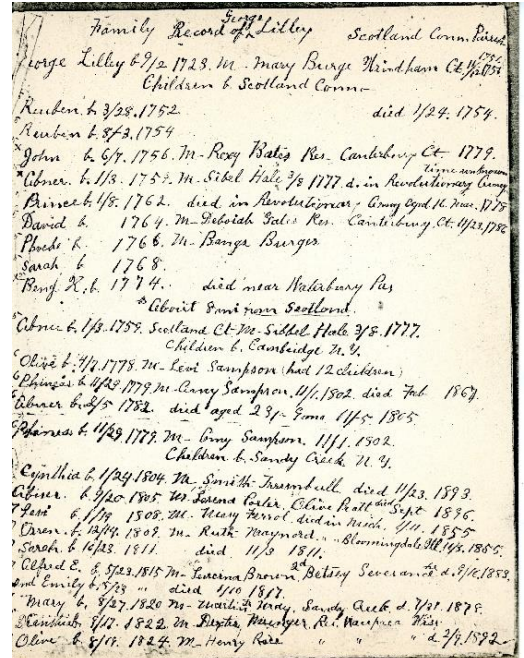 George
Family Record of Lilley Scotland Conn. Parish
George Lilley b 9/2 1723. m - Mary Burge Windham Ct.
Children b. Scotland Conn-
Reuben b. 3/28. 1752 died 1/24. 1754.
Reuben b. 8/3. 1754
John b. 6/7. 1756. m - Roxy Bates Res. Canterbury Ct 1779.
time unknown
Abner. b. 1/3. 1759. m - Sibel Hale 3/8 1777. d. in Revolutionary Army
Prince b. 1/8. 1762. died in Revolutionary Army aged 16. Mar. 1778
David b 1764. m - Deborah Gates Res. Canterbury, Ct. 11/23, 1786
Phoebe b. 1766. m - Banga Burges
Sarah b 1768.
Benj. K. b. 1774. died near Waterbury Pas
About 8 mi from Scotland.
Abner b. 1/3. 1759. Scotland Ct m - Sibbel Hale 3/8. 1777.
Children b. Cambridge N.Y.
Olive b. 4/7. 1778. m - Levi Sampson (had 12 children)
Phineas b 11/29 1779. m - Amy Sampson. 11/1. 1802. died Feb 1864
Abner b. 2/5 1782. died aged 23 11/5. 1805
Phineas b 11/29 1779. m - Amy Sampson. 11/1. 1802.
Children b. Sandy Creek N.Y.
Cynthia b. 1/24. 1804. m. Smith Trumbull died 11/23. 1893.
Abner. b. 9/20 1805 m. Lorena Porter, Olive Pratt died Sept 1896.
Levi b. 1/19 1808. m - Mary died in Mich. 1/11. 1855
Orren. b. 12/14. 1809. m - Ruth Maynard. " Bloomingdale Ill. 11/3. 1855.
Sarah. b. 10/23. 1811. died 11/3 1811.
Alfred E. b. 5/23. 1815 m - Laverna Brown, 2d Betsy Severance d. 9/10, 1883.
and Emily b. 5/23 " died 1/10 1817.
Mary b. 8/27. 1820 m - Martin Wray, Sandy Creek. d. 7/21. 1878.
b. 8/17. 1822 m - Dexter Munger. Res. Waupaca Wisc.
Olive b. 8/19. 1824. m - Henry Race " " " d 2/9. 1892